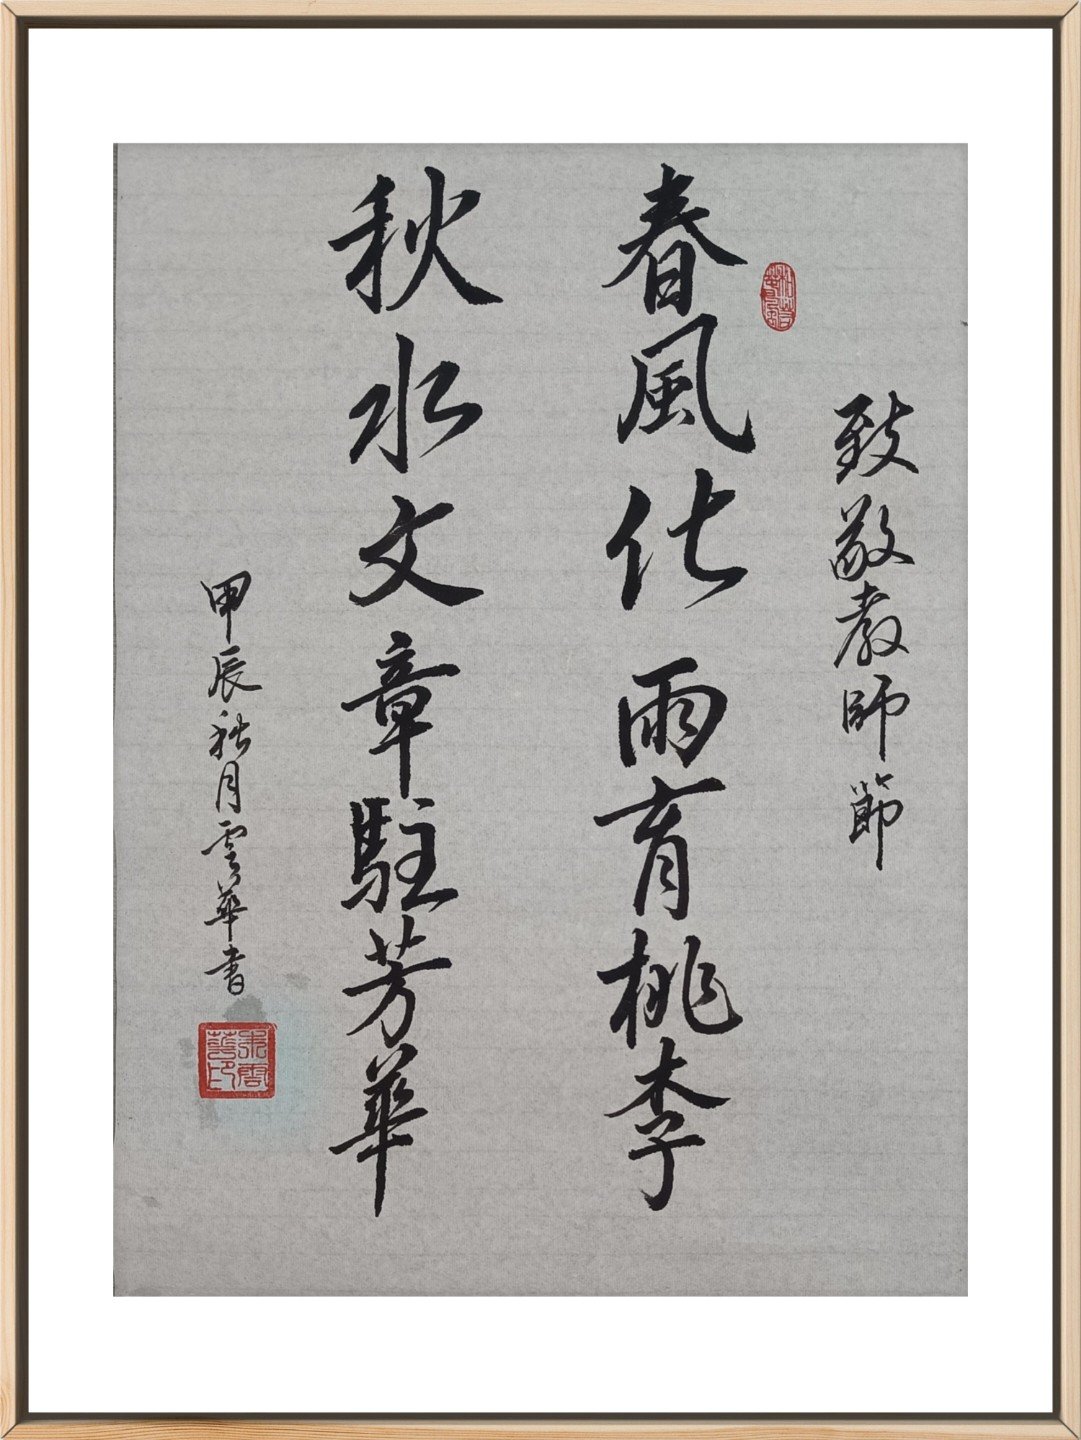 致敬教師節
春風化雨育桃李
秋水文章駐芳華
甲辰秋月雲華书